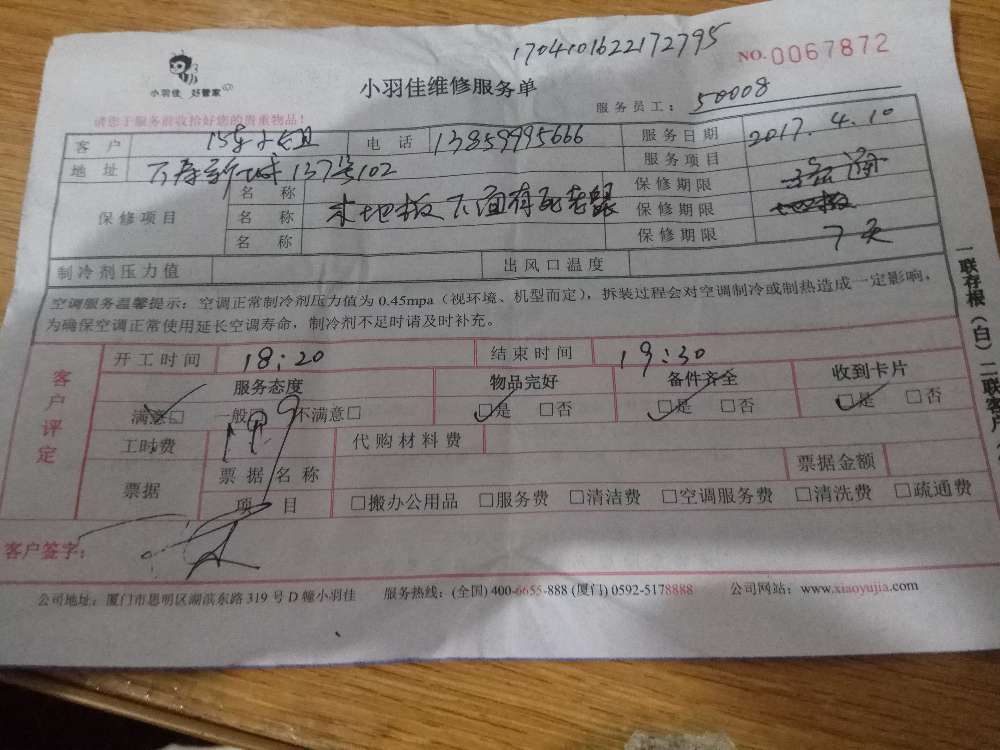 1704101622172795
NO.0067872
小羽佳 好管家
小羽佳维修服务单
服务员工： 50008
请您于服务前收拾好您的贵重物品！
客 户 小姐 电 话 13859995666 服务日期 2017.4.10
地 址 137号102 服务项目
保修项目 名 称 木地板下面有死老鼠 保修期限
名 称 保修期限 地板
名 称 保修期限 7天
制冷剂压力值 出风口温度
空调服务温馨提示：空调正常制冷剂压力值为 0.45mpa（视环境、机型而定），拆装过程会对空调制冷或制热造成一定影响，
为确保空调正常使用延长空调寿命，制冷剂不足时请及时补充。
客户评定
开工时间 18:20 结束时间 19:30
服务态度 物品完好 备件齐全 收到卡片
满意□ 一般□ 不满意□ □是 □否 □是 □否 □是 □否
工时费 代购材料费
票据 票据名称 票据金额
项 目 □搬办公用品 □服务费 □清洁费 □空调服务费 □清洗费 □疏通费
客户签字：
公司地址：厦门市思明区湖滨东路 319 号 D 幢小羽佳 服务热线：(全国) 400-6655-888 (厦门) 0592-5178888 公司网站：www.xiaoyujia.com
一联存根（白）二联客户